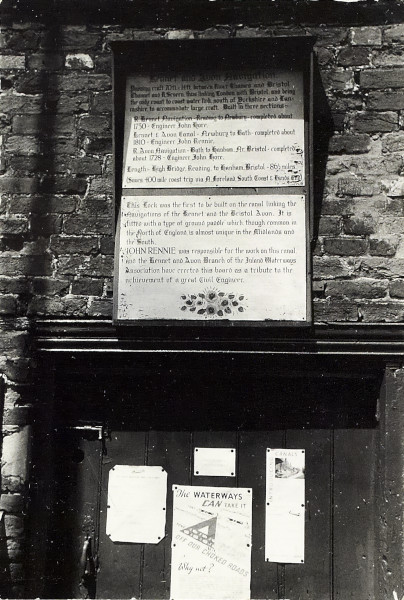 Navigation
70ft x 14ft, between River Thames and Bristol
Channel and R. Severn, thus linking London with Bristol, and being
the only coast to coast water link south of Yorkshire and Lan-
cashire, to accommodate large craft. Built in three sections—
R. Kennet Navigation - Reading to Newbury - completed about
1730 - Engineer John Hore.
Kennet & Avon Canal - Newbury to Bath - completed about
1810 - Engineer John Rennie.
R. Avon Navigation - Bath to Hanham Nr. Bristol - completed
about 1728 - Engineer John Hore.
Length - High Bridge, Reading, to Hanham, Bristol - 86½ miles
(Saves 400 mile coast trip via N. Foreland, South Coast & Lands End)
This Lock was the first to be built on the canal linking the
Navigations of the Kennet and the Bristol Avon. It is
fitted with a type of ground paddle which, though common in
the North of England is almost unique in the Midlands and
the South.
JOHN RENNIE was responsible for the work on this canal
and the Kennet and Avon Branch of the Inland Waterways
Association have erected this board as a tribute to the
achievement of a great Civil Engineer.
The WATERWAYS
CAN TAKE IT
OFF OUR CHOKED ROADS
Why not?